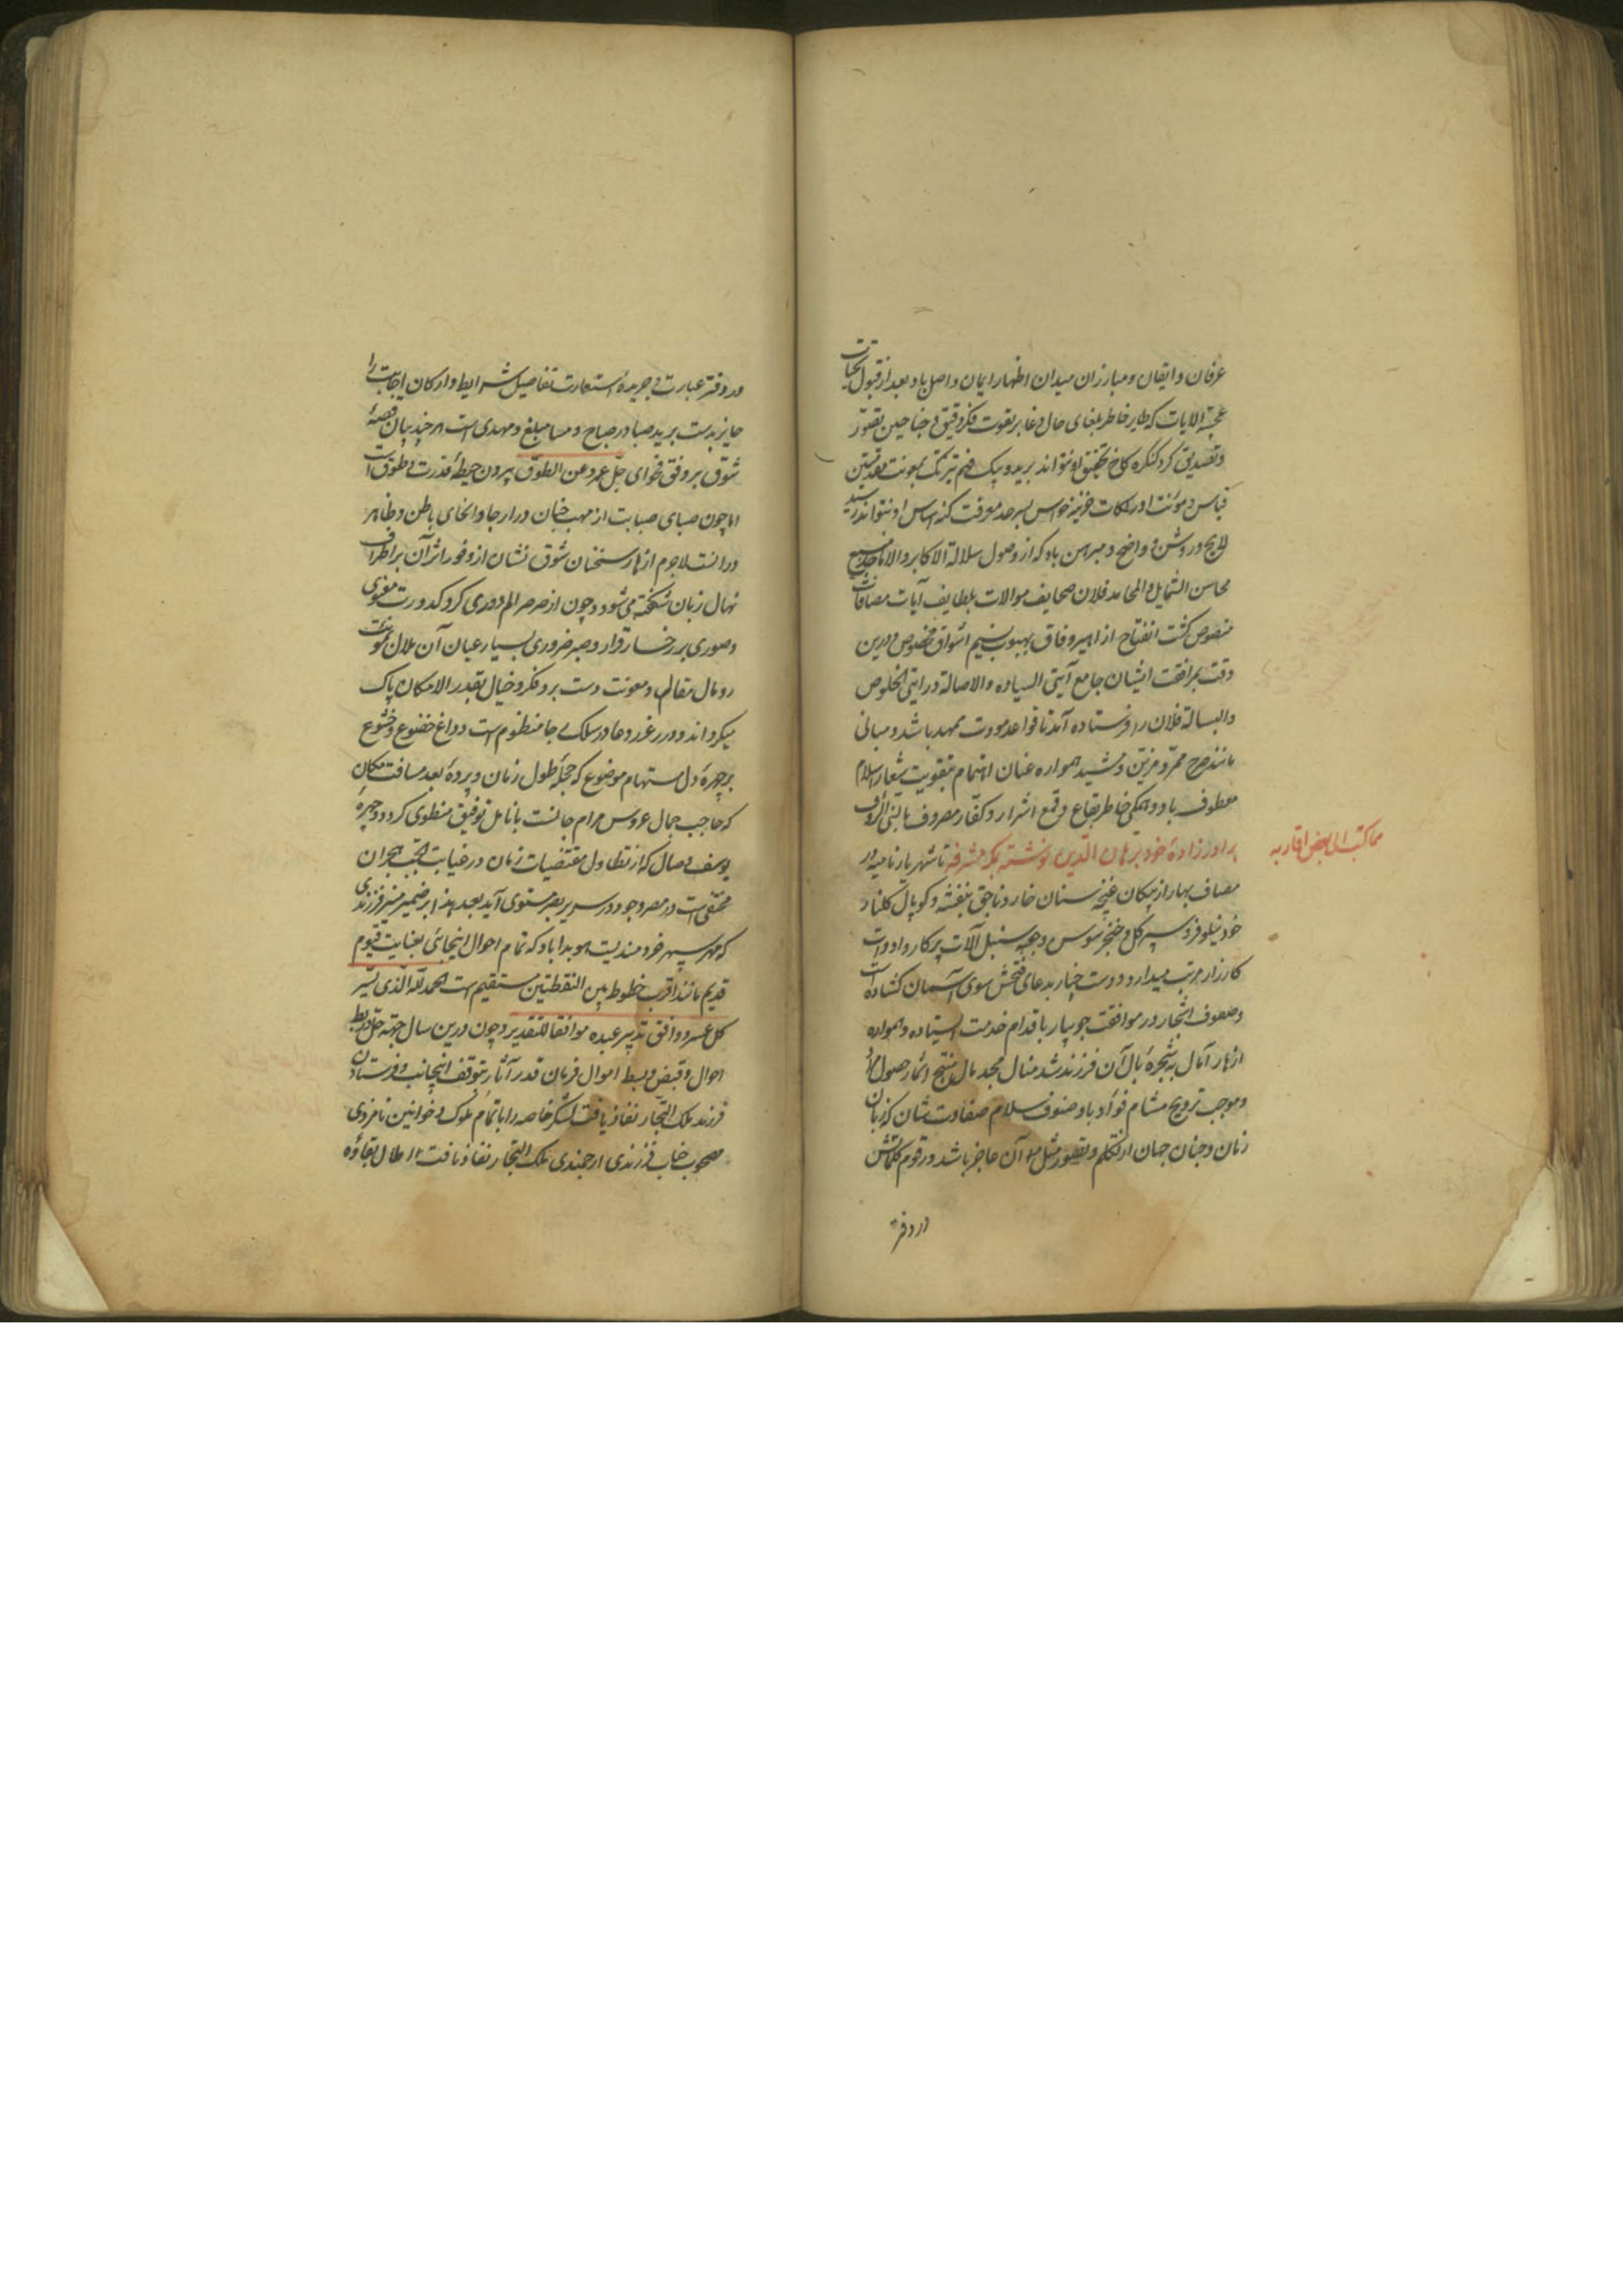 عرفان و ایقان و مبارزان میدان اظهار ایمان واصل باد بعد از قبول تحیات
که طایر خاطر بلغای حال و غابر بقوت فکر دقیق و جناحین تصور
و تصدیق کرد کنکره کاخ تحقیق او نتواند پرید و پیک فهم تیزتک بمعونت مقدمتین
قیاس و مؤنت ادراکات خزینه حواس بسرحد معرفت کنه اساس او نتواند رسید
لایح و روشن و واضح و مبرهن باد که از وصول سلالة الاکابر و الاماجد جامع
محاسن الشمایل و المحامد فلان صحایف موالات بلطایف آیات مصافات
منصوص کشت انفتاح ازاهیر وفاق بهبوب نسیم اشواق مخصوص و درین
وقت بمرافقت ایشان جامع آیتی السیاده و الاصالة و رایتی الخلوص
و البسالة فلان را فرستاده آمد تا قواعد مودت ممهد باشد و مبانی
مانند صرح ممرد مزین و مشید همواره عنان اهتمام بتقویت شعار اسلام
معطوف باد و همکی خاطر بقلع و قمع اشرار و کفار مصروف بالنبی الرؤف
مما کتب الی بعض اقاربه
برادر زادهٔ خود برهان الدین نوشته بمکه مشرفه تا شهریار نامیه در
مصاف بهار از پیکان غنچه سنان خار و ناجق بنفشه و کوپال کلنار
خود نیلوفر و سپر کل و خنجر سوسن و جبه سنبل آلات پیکار و ادوات
کارزار مرتب میدارد و دست چنار بدعای فتحش سوی آسمان کشاده است
و صفوف اشجار در موافقت جویبار باقدام خدمت ایستاده همواره
ازهار آمال شجرهٔ بال آن فرزند رشد منال مجد مال منتج اثمار حصول مراد
و موجب ترویح مشام فواد باد صنوف سلام صفاوت نشان که زبان
زمان و جنان جهان از تکلم و تصور مثل آن عاجز باشد و رقوم کلماتش
در دفتر
در دفتر عبارت و جریدهٔ استعارت تفاصیل شرایط و ارکان اجابت را
حایز بدست برید صبا در صباح و مسا مبلغ و مهدی است هر چند بیان قصهٔ
شوق بر وفق فحوای جل عمرو عن الطوق بیرون حیطهٔ قدرت و طوق است
اما چون صبای صبابت از مهب جنان در ارجا و انحای باطن و ظاهر
وزانست لاجرم ازهار سخنان شوق نشان از وفور اثر آن بر اطراف
نهال زبان شکفته می شود و چون از صرصر الم دوری کرد کدورت معنوی
و صوری بر رخسار قرار و صبر ضروری بسیار عیان آن ملال بمؤنت
رومال مقال و معونت دست برد فکر و خیال بقدر الامکان پاک
میکرداند و درر غرر دعا در سلک رجا منظوم است و داغ خضوع و خشوع
بر چهرهٔ دل مستهام موضوع که حجلهٔ طول زمان و پردهٔ بعد مسافت مکان
که حاجب جمال عروس مرام جانست بانامل توفیق منطوی کردد و چهرهٔ
یوسف وصال که از تطاول مقتضیات زمان در غیابت الجب هجران
مختفی است در مصر وجود بر سریر بصر مستوی آید بعد هذا بر ضمیر منیر فرزندی
که مهر سپهر خردمندیست هویدا باد که تمام احوال اینجانبی بعنایت قیوم
قدیم مانند اقرب خطوط بین النقطتین مستقیم است الحمد لله الذی یسر
کل عسر و وافق تدبیر عبده موافقا للتقدیر و چون درین سال جهة حل و ربط
احوال و قبض و بسط اموال فرمان قدر آثار بتوقف اینجانب و فرستادن
فرزند ملک التجار نفاذ یافت لشکر خاصه را با تمام ملوک و خوانین نامزدی
مصحوب جناب فرزندی ارجمندی ملک التجار نفاذ یافت طال بقاؤه